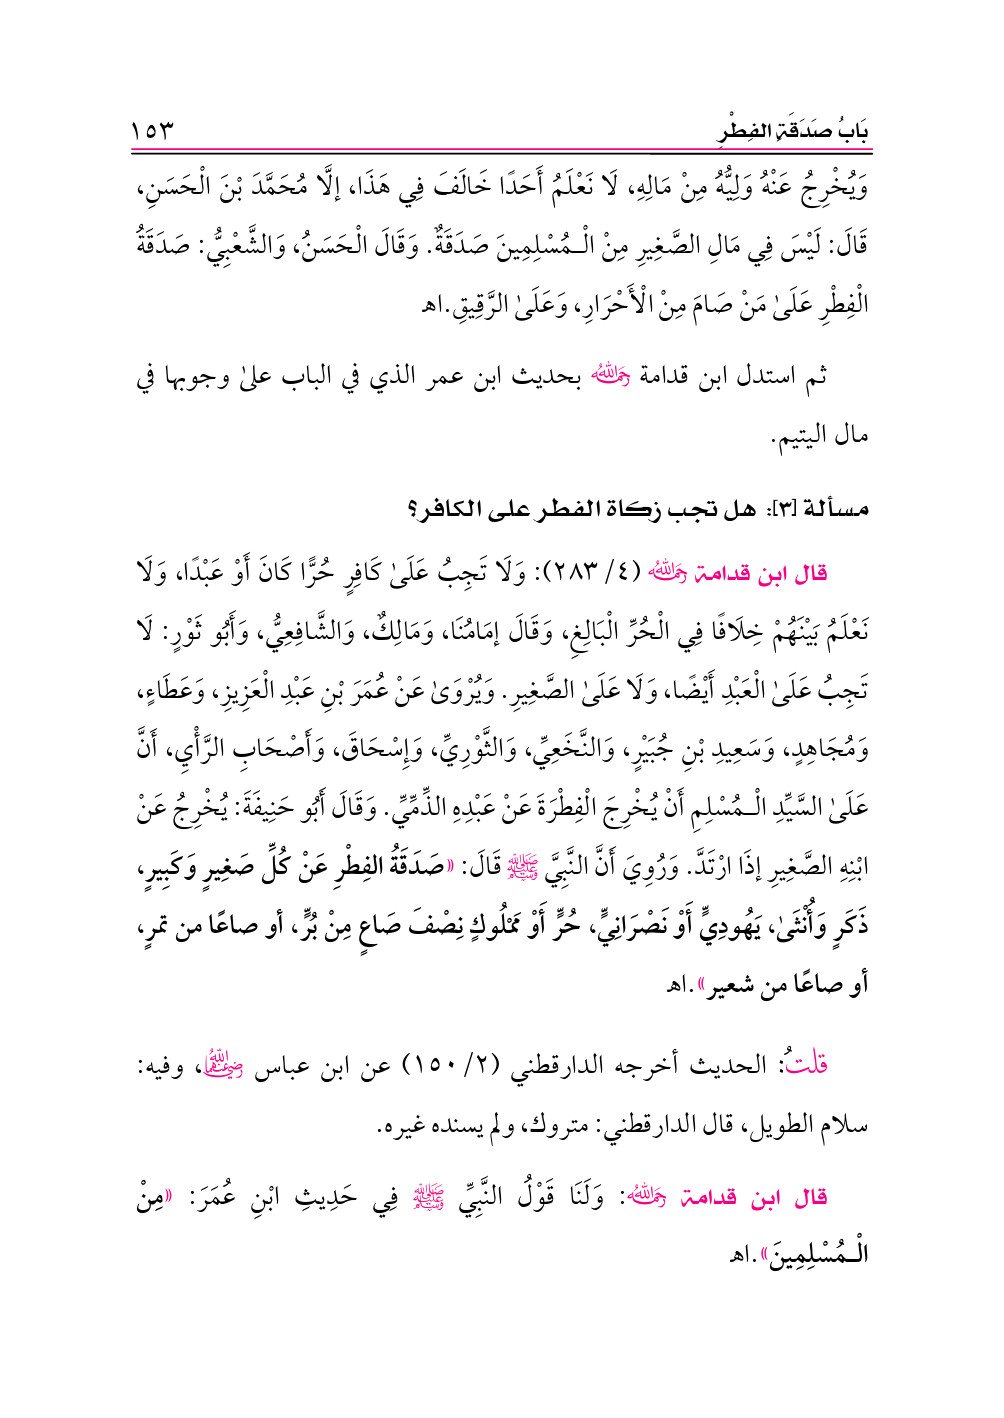 بَابُ صَدَقَةِ الفِطْرِ ١٥٣
وَيُخْرِجُ عَنْهُ وَلِيُّهُ مِنْ مَالِهِ، لَا نَعْلَمُ أَحَدًا خَالَفَ فِي هَذَا، إلَّا مُحَمَّدَ بْنَ الْحَسَنِ،
قَالَ: لَيْسَ فِي مَالِ الصَّغِيرِ مِنْ الْـمُسْلِمِينَ صَدَقَةٌ. وَقَالَ الْحَسَنُ، وَالشَّعْبِيُّ: صَدَقَةُ
الْفِطْرِ عَلَىٰ مَنْ صَامَ مِنْ الْأَحْرَارِ، وَعَلَىٰ الرَّقِيقِ.اهـ
ثم استدل ابن قدامة رحمه الله بحديث ابن عمر الذي في الباب علىٰ وجوبها في
مال اليتيم.
مسألة [٣]: هل تجب زكاة الفطر على الكافر؟
قال ابن قدامة رحمه الله (٤/ ٢٨٣): وَلَا تَجِبُ عَلَىٰ كَافِرٍ حُرًّا كَانَ أَوْ عَبْدًا، وَلَا
نَعْلَمُ بَيْنَهُمْ خِلَافًا فِي الْحُرِّ الْبَالِغِ، وَقَالَ إمَامُنَا، وَمَالِكٌ، وَالشَّافِعِيُّ، وَأَبُو ثَوْرٍ: لَا
تَجِبُ عَلَىٰ الْعَبْدِ أَيْضًا، وَلَا عَلَىٰ الصَّغِيرِ. وَيُرْوَىٰ عَنْ عُمَرَ بْنِ عَبْدِ الْعَزِيزِ، وَعَطَاءٍ،
وَمُجَاهِدٍ، وَسَعِيدِ بْنِ جُبَيْرٍ، وَالنَّخَعِيِّ، وَالثَّوْرِيِّ، وَإِسْحَاقَ، وَأَصْحَابِ الرَّأْيِ، أَنَّ
عَلَىٰ السَّيِّدِ الْـمُسْلِمِ أَنْ يُخْرِجَ الْفِطْرَةَ عَنْ عَبْدِهِ الذِّمِّيِّ. وَقَالَ أَبُو حَنِيفَةَ: يُخْرِجُ عَنْ
ابْنِهِ الصَّغِيرِ إذَا ارْتَدَّ. وَرُوِيَ أَنَّ النَّبِيَّ ﷺ قَالَ: «صَدَقَةُ الفِطْرِ عَنْ كُلِّ صَغِيرٍ وَكَبِيرٍ،
ذَكَرٍ وَأُنْثَىٰ، يَهُودِيٍّ أَوْ نَصْرَانِيٍّ، حُرٍّ أَوْ مَمْلُوكٍ نِصْفَ صَاعٍ مِنْ بُرٍّ، أو صاعًا من تمرٍ،
أو صاعًا من شعير».اهـ
قلتُ: الحديث أخرجه الدارقطني (٢/ ١٥٠) عن ابن عباس رضي الله عنهما، وفيه:
سلام الطويل، قال الدارقطني: متروك، ولم يسنده غيره.
قال ابن قدامة رحمه الله: وَلَنَا قَوْلُ النَّبِيِّ ﷺ فِي حَدِيثِ ابْنِ عُمَرَ: «مِنْ
الْـمُسْلِمِينَ».اهـ